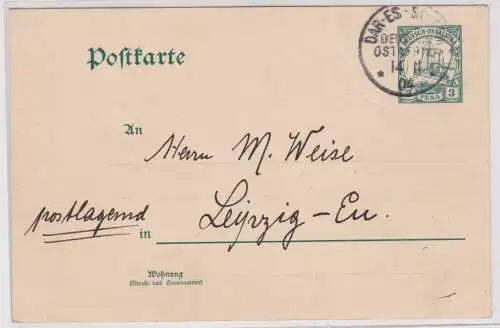 DAR-ES-
DEUTSCH-OSTAFRIKA
OST
14 11
04
3 PESA
Postkarte
An
Herrn M. Weise
postlagernd
in Leipzig-Eu.
Wohnung
(Straße und Hausnummer)